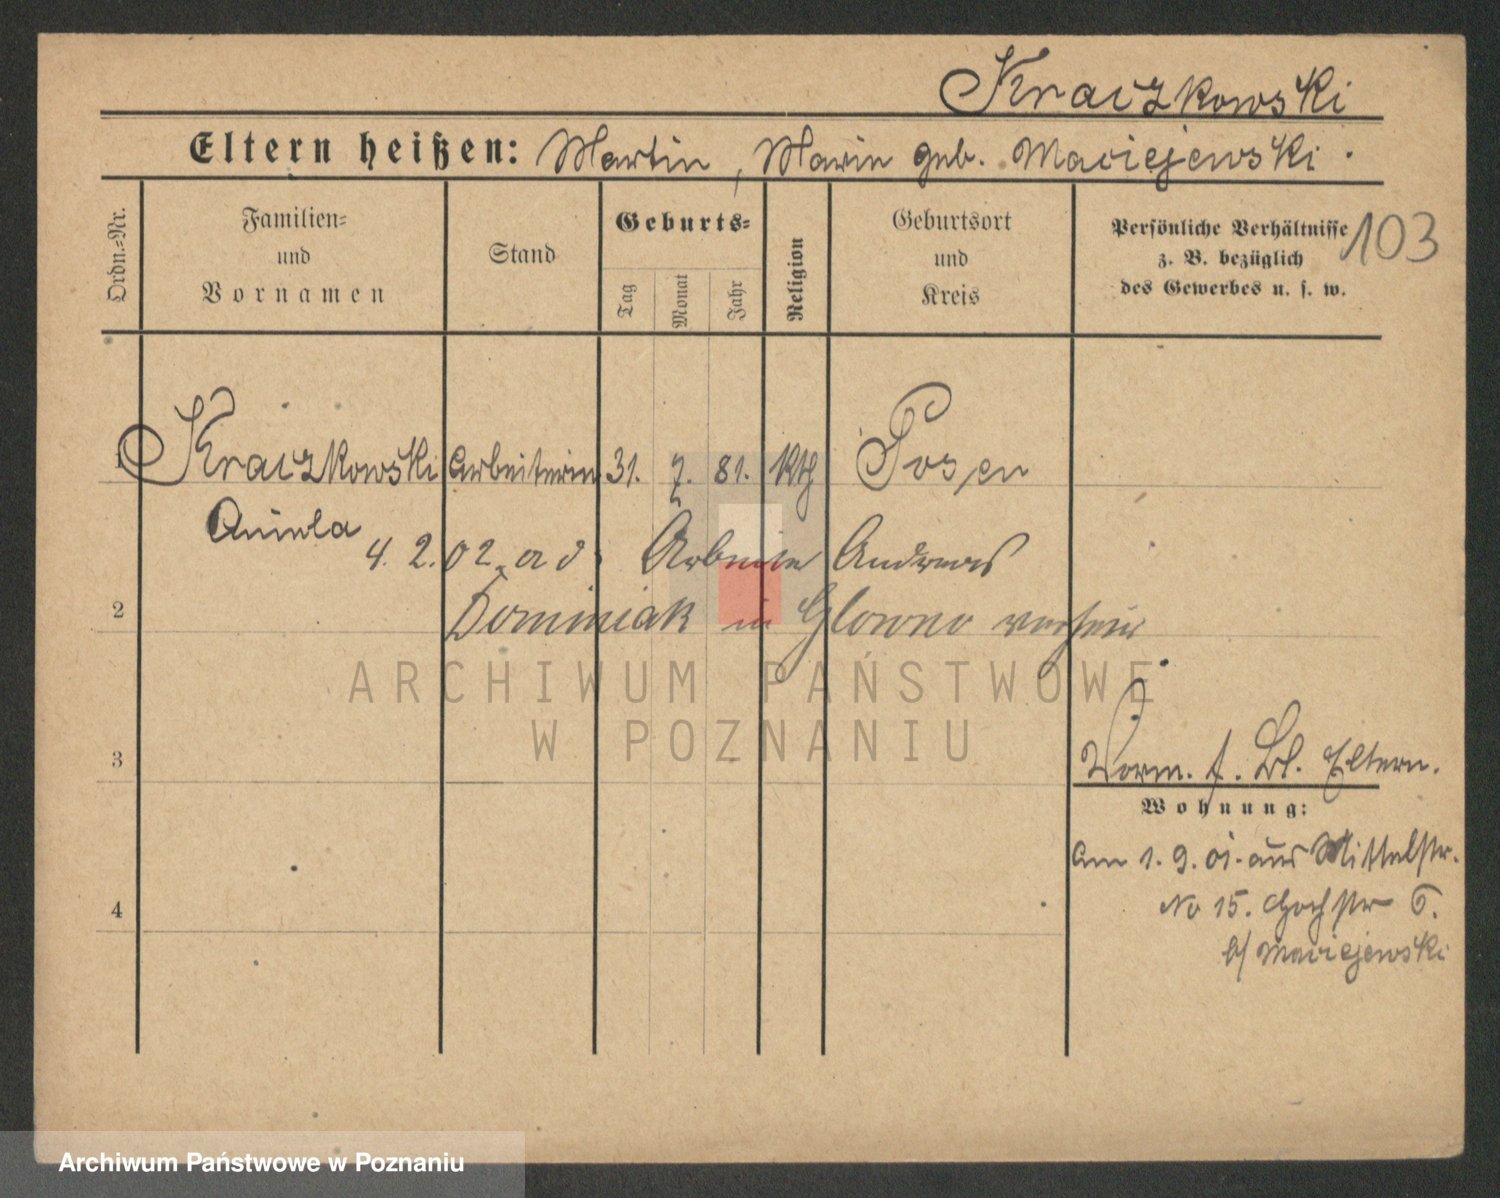 Kraczkowski
Eltern heißen: Martin, Marie geb. Maciejewski.
103
Ordn.-Nr.
Familien-
und
Vornamen
Stand
Geburts-
Tag
Monat
Jahr
Religion
Geburtsort
und
Kreis
Persönliche Verhältnisse
z. B. bezüglich
des Gewerbes u. s. w.
1 Kraczkowski Arbeiterin 31. 7. 81. kth Posen
Aniela
4. 2. 02. Arbeiter Andreas
2 Dominiak in Glowno
ARCHIWUM PAŃSTWOWE
W POZNANIU
3
Vorm. f. Bl. Eltern.
Wohnung:
Am 1. 9. 01. aus Mittelstr.
No 15. Hochstr 6.
b/ Maciejewski
4
Archiwum Państwowe w Poznaniu